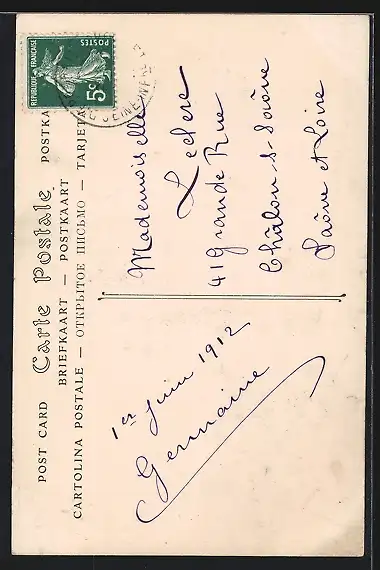 POST CARD Carte Postale POSTKA
BRIEFKAART — POSTKAART
CARTOLINA POSTALE — ОТКРЫТОЕ ПИСЬМО — TARJETA
REPUBLIQUE FRANÇAISE
POSTES
5c
1er Juin 1912
Germaine
Mademoiselle
Leclerc
41 Grande Rue
Châlon-s-Saône
Saône et Loire